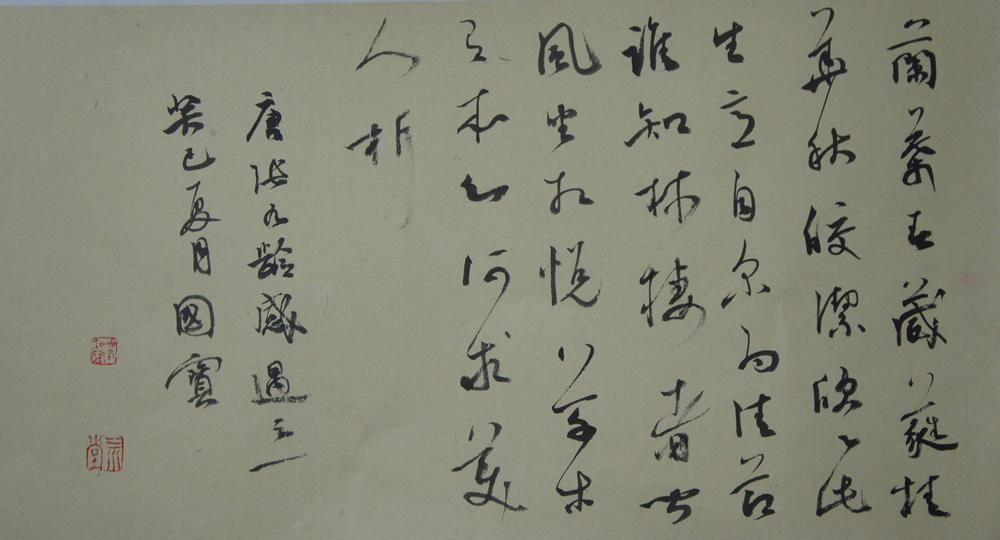 蘭葉春葳蕤桂
華秋皎潔欣欣此
生意自尔為佳節
誰知林棲者聞
風坐相悅草木
有本心何求美
人折
唐張九齡感遇之一
癸巳夏月國寶